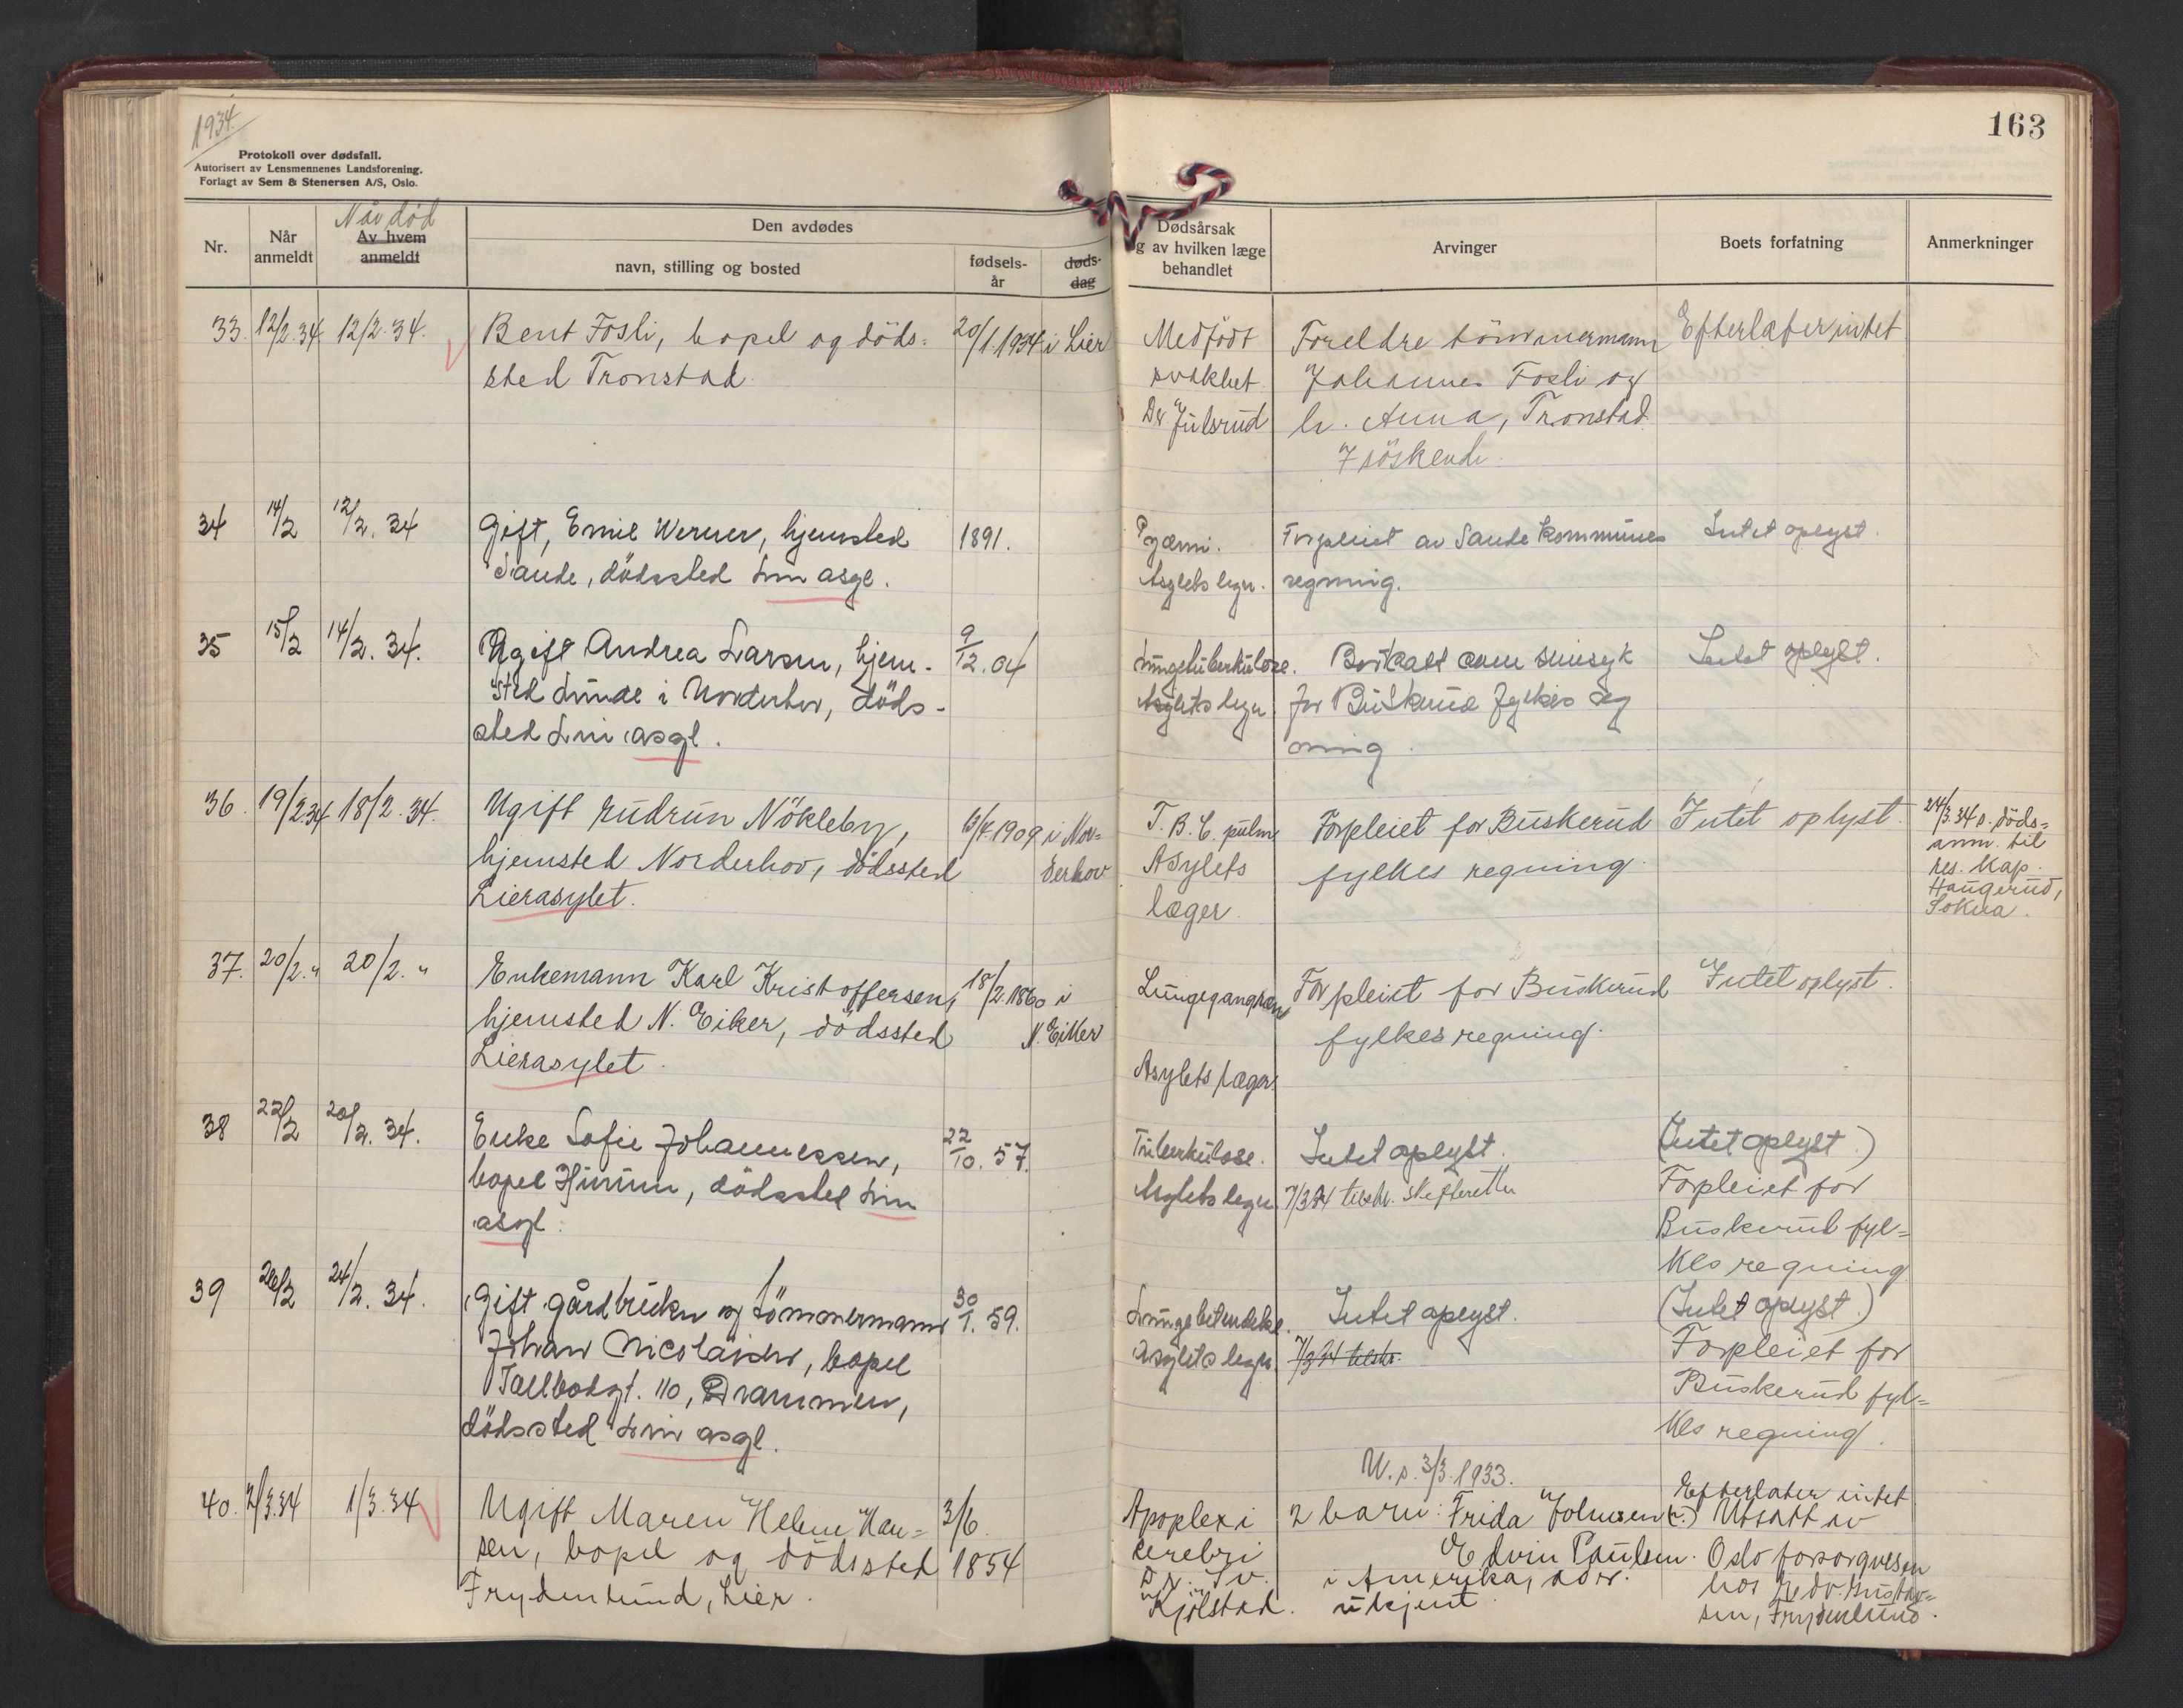 1934.
163
Protokoll over dødsfall.
Autorisert av Lensmennenes Landsforening.
Forlagt av Sem & Stenersen A/S, Oslo.
Nr.
Når
anmeldt
Når død
Av hvem
anmeldt
Den avdødes
navn, stilling og bosted
fødsels-
år
døds-
dag
Dødsårsak
og av hvilken læge
behandlet
Arvinger
Boets forfatning
Anmerkninger
33. 12/2.34 12/2.34. Bent Fosli, bopel og döds- 20/1.1934 i Lier
sted Tronstad.
Medfödt
svakhet.
Dr. Julsrud
Foreldre tömmermann
Johannes Fosli og
h. Anna, Tronstad.
7 söskende.
Efterlater intet
34 14/2 12/2. 34 Gift, Emil Werner, hjemsted 1891.
Sande, dödssted Lier asyl.
Pyæmi.
Asylets legn.
Forpleiet av Sande kommunes
regning.
Intet oplyst.
35 15/2 14/2. 34. Ugift Andrea Larsen, hjem- 9/12. 04
sted Lunde i Norderhov, döds-
sted Lier asyl.
Lungetuberkulose.
Asylets legn
Bortsatt som sinsyk
for Buskerud fylkes reg
ning.
Intet oplyst.
36. 19/2.34 18/2.34. Ugift Gudrun Nökleby, 6/7.1909 i Nor-
hjemsted Norderhov, dödssted derhov
Lierasylet.
T.B.C. pulm
Asylets
læger.
Forpleiet for Buskerud
fylkes regning.
Intet oplyst.
24/3.34 s. döds-
anm. til
res. kap.
Haugerud,
Sokna.
37. 20/2. " 20/2. " Enkemann Karl Kristoffersen, 18/2.1860 i
hjemsted N. Eiker, dödssted N. Eiker
Lierasylet.
Lungegangræne
Asylets læger.
Forpleiet for Buskerud
fylkes regning.
Intet oplyst.
38 22/2 20/2. 34. Enke Sofie Johannessen, 22/10. 57.
bopel Hurum, dödssted Lier
asyl.
Tuberkulose.
Asylets legn
Intet oplyst.
7/3 34 tilskr. skifteretten
(Intet oplyst.)
Forpleiet for
Buskerud fyl=
kes regning
39 26/2 24/2. 34. Gift gårdbruker og tömmermann 30/1. 59.
Johan Nicolaisen, bopel
Tollbodgt. 110, Drammen,
dödssted Lier asyl.
Lungebetendelse.
Asylets legn.
Intet oplyst.
7/3 34 tilskr.
(Intet oplyst.)
Forpleiet for
Buskerud fyl=
kes regning.
40. 2/3.34 1/3.34 Ugift Maren Helene Han= 3/6.
sen, bopel og dödssted 1854
Frydenlund, Lier.
Apoplexi
cerebri
Dr. Sv.
Kjölstad.
U. s. 3/3.1933.
2 barn: Frida Johnsen
Edvin Paulsen.
i Amerika, adr.
ukjent.
Efterlater intet
Utsatt av
Oslo forsorgvesen
hos Hedv. Gustav=
sen, Frydenlund.